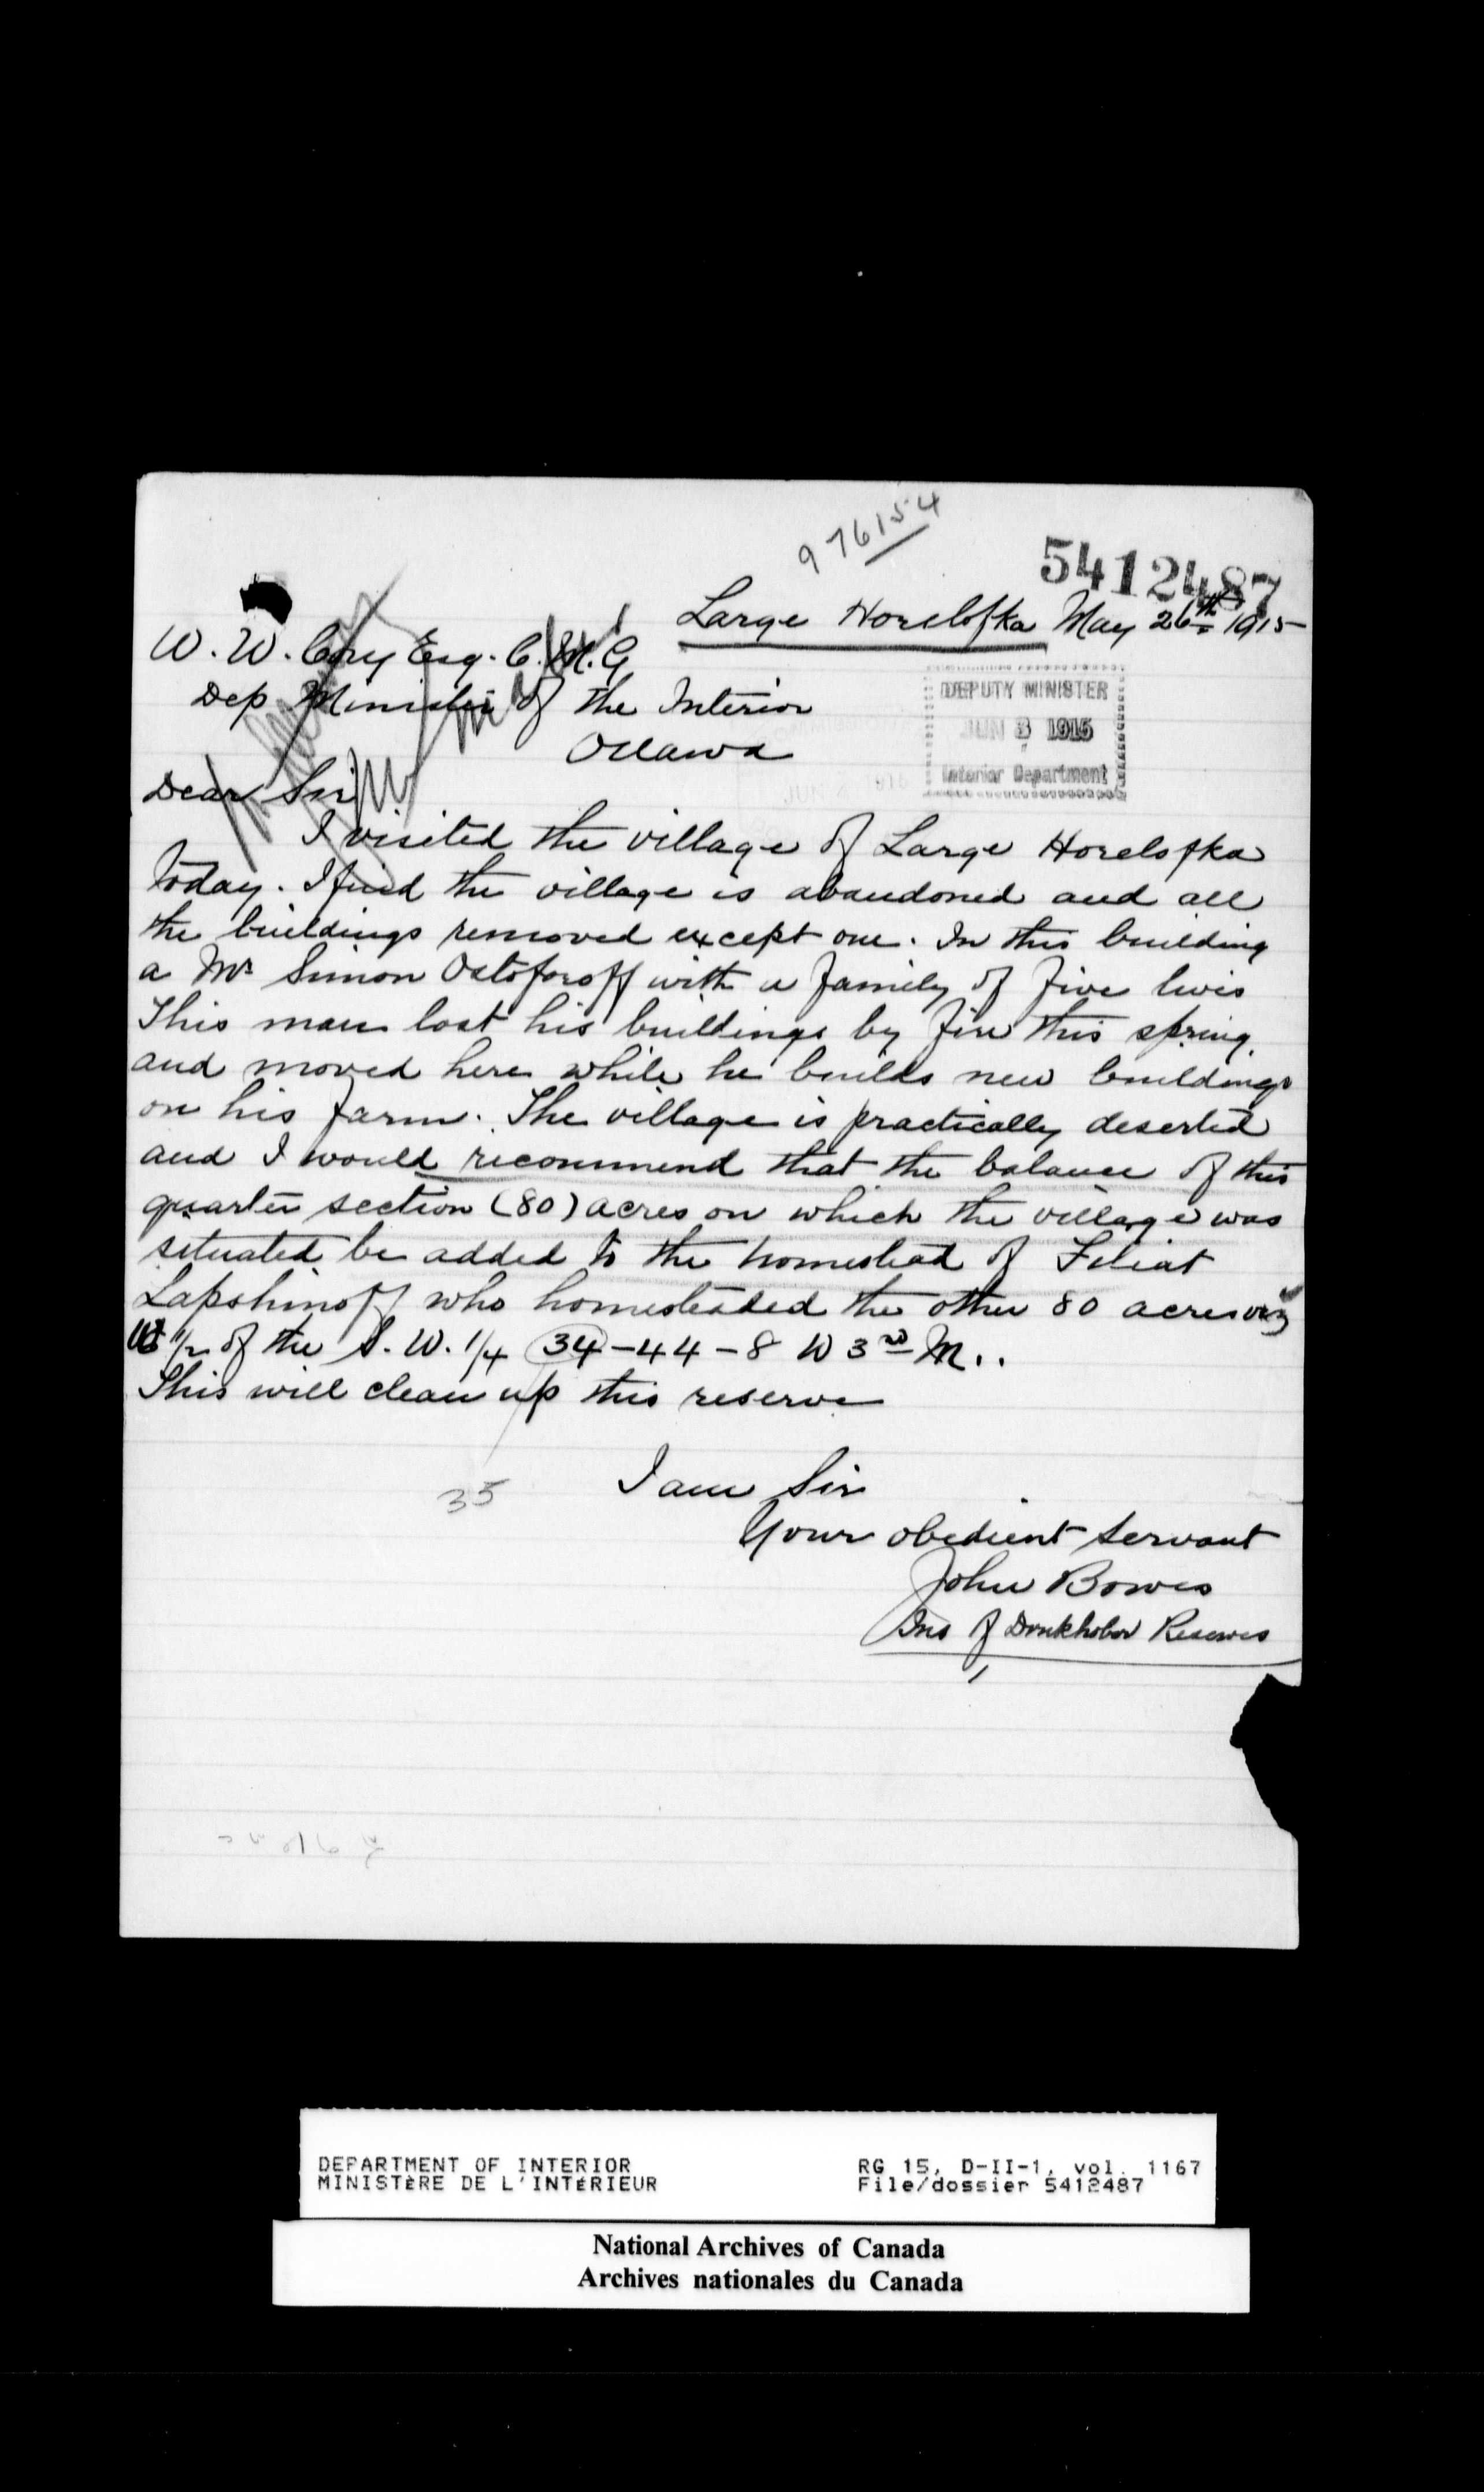 976154
5412487
Large Horelofka May 26th 1915
W. W. Cory Esq. C. M. G
Dep Minister of the Interior
Ottawa
DEPUTY MINISTER
JUN 3 1915
Interior Department
Dear Sir
I visited the village of Large Horelofka
today. I find the village is abandoned and all
the buildings removed except one. In this building
a Mr Simon Ostoforoff with a family of five lives
This man lost his buildings by fire this spring
and moved here while he builds new buildings
on his farm. The village is practically deserted
and I would recommend that the balance of this
quarter section (80) acres on which the village was
situated be added to the homestead of Filiat
Lapshinoff who homesteaded the other 80 acres viz
W 1/2 of the S. W. 1/4 34-44-8 W 3rd M..
This will clean up this reserve
35
I am Sir
Your obedient servant
John Bowes
Ins of Doukhobor Reserves
DEPARTMENT OF INTERIOR
MINISTÈRE DE L'INTÉRIEUR
RG 15, D-II-1, vol. 1167
File/dossier 5412487
National Archives of Canada
Archives nationales du Canada